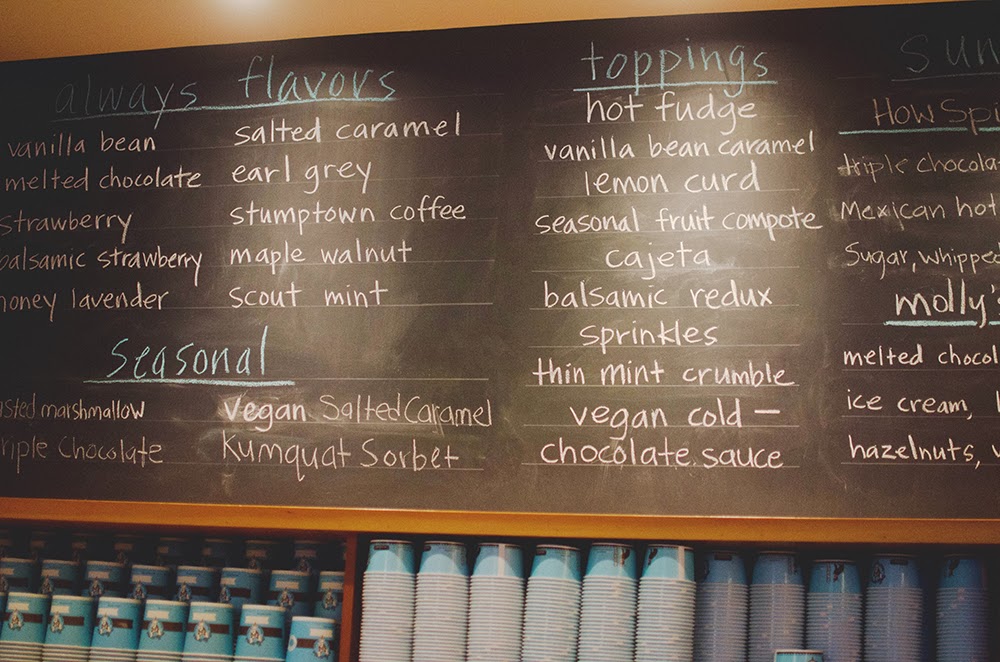 always flavors
vanilla bean
melted chocolate
strawberry
balsamic strawberry
honey lavender
salted caramel
earl grey
stumptown coffee
maple walnut
scout mint
Seasonal
marshmallow
Triple Chocolate
vegan Salted Caramel
Kumquat Sorbet
toppings
hot fudge
vanilla bean caramel
lemon curd
seasonal fruit compote
cajeta
balsamic redux
sprinkles
thin mint crumble
vegan cold –
chocolate sauce
How
triple
Mexican hot
Sugar, whipped
molly's
melted
ice cream,
hazelnuts,